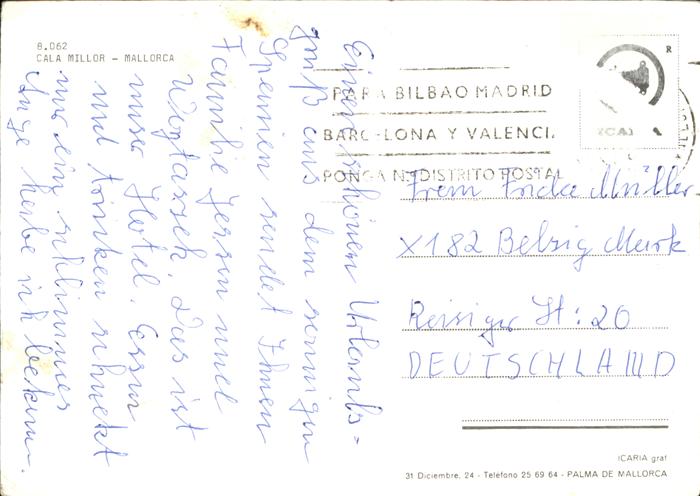 8.062
CALA MILLOR - MALLORCA
Einen schönen Urlaubs-
gruß aus dem sonnigen
Spanien sendet Ihnen
Familie Jessen und
Das ist
unser Hotel. Essen
und trinken schmeckt
nur ein schlimmes
Auge habe ich bekom.
PARA BILBAO MADRID
BARCELONA Y VALENCIA
PONGA Nº DISTRITO POSTAL
R
Frau Fricke Müller
X182 Belzig Mark
Reisiger St: 20
DEUTSCHLAND
ICARIA graf
31 Diciembre, 24 - Teléfono 25 69 64 - PALMA DE MALLORCA